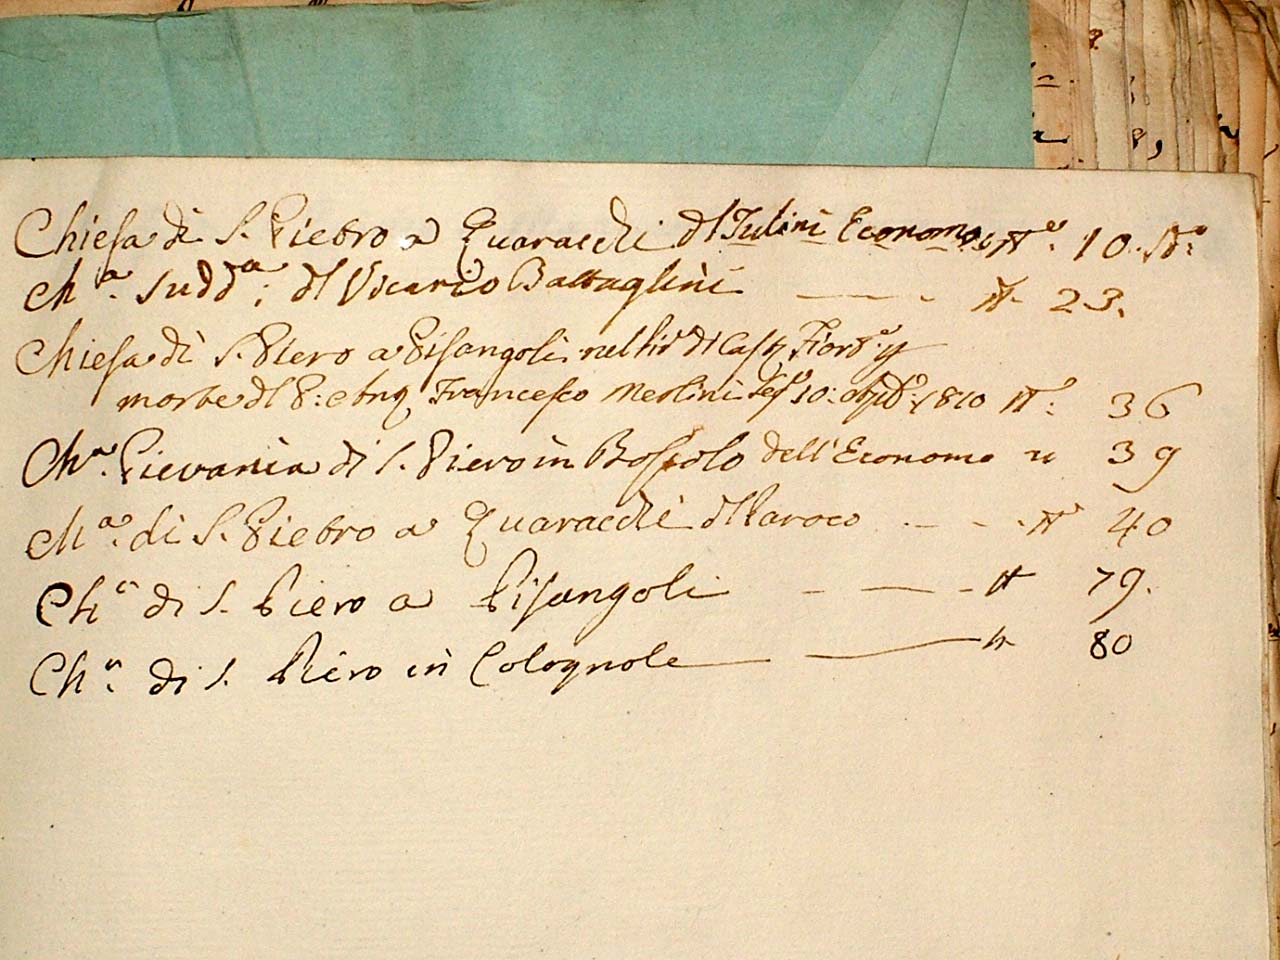 Chiesa di S. Pietro a Quaracchi dl Tulini Economo Nº. 10.
Chª. Suddª; dl Vicario Battaglini N. 23.
Chiesa di S. Piero a Pisangoli
morte dl Francesco Merlini 10: 1810 Nº: 36
Chª. Pievania di S. Piero in Bossolo dell'Economo N 39
Chª. di S. Pietro a Quaracchi dl Paroco N 40
Chª di S. Piero a Pisangoli N 79.
Chª. di S. Piero in Colognole N 80